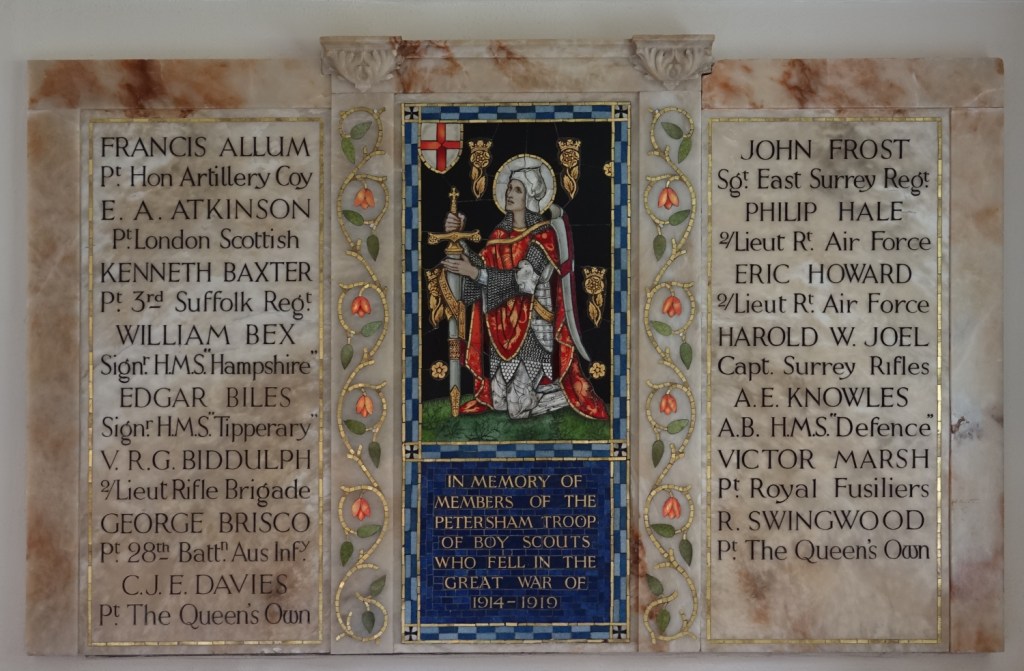 FRANCIS ALLUM
Pt Hon Artillery Coy
E. A. ATKINSON
Pt London Scottish
KENNETH BAXTER
Pt 3rd Suffolk Regt
WILLIAM BEX
Signr H.M.S. "Hampshire"
EDGAR BILES
Signr H.M.S. "Tipperary"
V. R. G. BIDDULPH
2/Lieut Rifle Brigade
GEORGE BRISCO
Pt 28th Battn Aus Infy
C. J. E. DAVIES
Pt The Queen's Own
IN MEMORY OF
MEMBERS OF THE
PETERSHAM TROOP
OF BOY SCOUTS
WHO FELL IN THE
GREAT WAR OF
1914-1919
JOHN FROST
Sgt East Surrey Regt
PHILIP HALE
2/Lieut Rt Air Force
ERIC HOWARD
2/Lieut Rt Air Force
HAROLD W. JOEL
Capt. Surrey Rifles
A. E. KNOWLES
A.B. H.M.S. "Defence"
VICTOR MARSH
Pt Royal Fusiliers
R. SWINGWOOD
Pt The Queen's Own